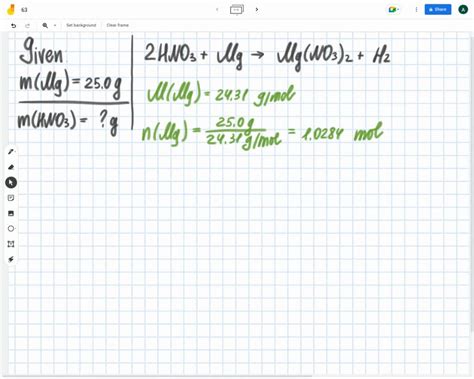 63
Set background
Clear frame
Share
A
Given
m(Mg) = 25.0 g
m(HNO₃) = ? g
2HNO₃ + Mg → Mg(NO₃)₂ + H₂
M(Mg) = 24.31 g/mol
n(Mg) = 25.0 g / 24.31 g/mol = 1.0284 mol